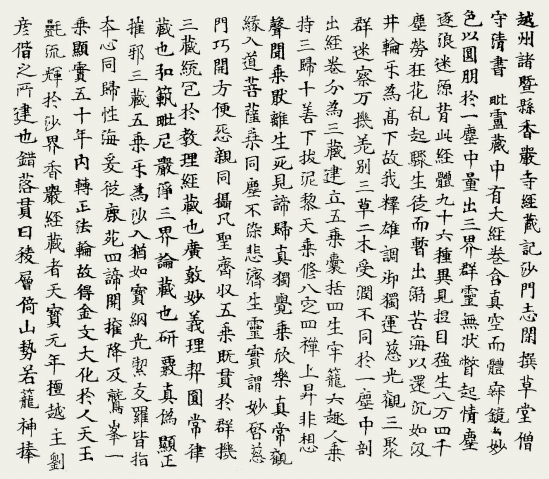 越州諸暨縣香嚴寺經藏記沙門志閑撰草堂僧
守清書毗盧藏中有大經卷含真空而體寂鏡妙
色以圓朋於一塵中量出三界群靈無狀瞥起情塵
逐浪迷源背此經體九十六種異見捏目強生八万四千
塵勞狂花乱起驟生徒而暫出溺苦海以還沉如汲
井輪乐為髙下故我釋雄調御獨運慈光觀三聚
群迷察万機羌別三草二木受潤不同於一塵中剖
出經卷分為三藏建立五乘囊括四生牢籠六趣人乗
持三歸十善下拔泥黎天乗脩八定四禪上昇非想
聲聞乗猒離生死見諦歸真獨覺乗欣樂真常觀
緣入道菩薩乗同塵不染悲濟生靈實謂妙啓慈
門巧開方便恐親同攝凡聖齊収五乗既貫於群機
三藏統冠於教理經藏也廣敷妙義理契圓常律
藏也和範毗尼嚴淨三界論藏也研覈真偽顯正
摧邪三藏五乗乐為沙入猶如寶網光潔交羅皆指
本心同歸性海爰從鹿苑四諦開權降及鷲峯一
乗顯實五十年内轉正法輪故得金文大化於人天玉
㲲流輝於沙界香嚴經藏者天寶元年檀越王劉
彦偕之所建也錯落貫日稜層倚山勢若籠神捧